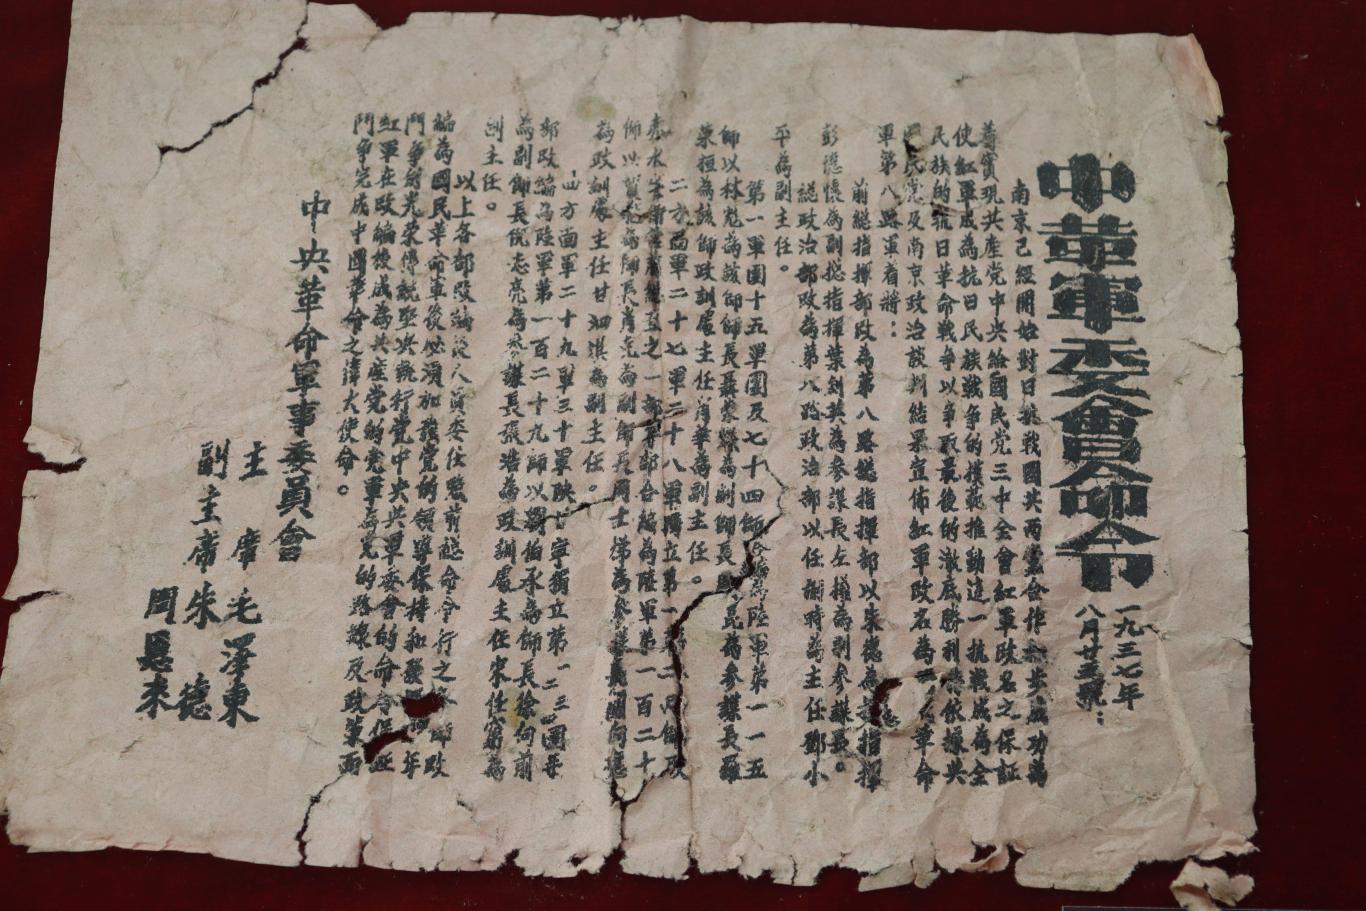 中華軍委會命令
一九三七年
八月廿五號：
南京已經開始對日抗戰國共兩黨合作初步成功為
着實現共產党中央給國民党三中全會紅軍改名之保証
使紅軍成為抗日民族戰爭的模範推動這一抗戰成為全
民族的抗日革命戰爭以爭取最後的澈底勝利特依據共
國民党及南京政治談判結果宣佈紅軍改名為革命
軍第八路軍着將：
前總指揮部改為第八路總指揮部以朱德為總指揮
彭德懷為副總指揮葉劍英為參謀長左權為副參謀長。
總政治部改為第八路政治部以任弼時為主任鄧小
平為副主任。
第一軍團十五軍團及七十四師為陸軍第一一五
師以林彪為該師師長聶榮臻為副師長昆為參謀長羅
榮桓為該師政訓處主任肖華為副主任。
二方面軍二十七軍二十八軍獨立第一二師
赤水警衛營總直之一部等部合編為陸軍第一百二十
師以賀龍為師長肖克為副師長周士第為參謀長關向應
為政訓處主任甘泗淇為副主任。
四方面軍二十九軍三十軍陝甘寧獨立第一二三四團等
部改編為陸軍第一百二十九師以劉伯承為師長徐向前
為副師長倪志亮為參謀長張浩為政訓處主任宋任窮為
副主任。
以上各部改編後人員委任照前總命令行之各師改
編為國民革命軍後必須加強党的領導保持和發年
鬥爭的光榮傳統堅決執行党中央共軍委會的命令保証
紅軍在改編後成為共產党的党軍為党的路線及政策而
鬥爭完成中國革命之偉大使命。
中央革命軍事委員會
主席 毛澤東
副主席 朱德
周恩來